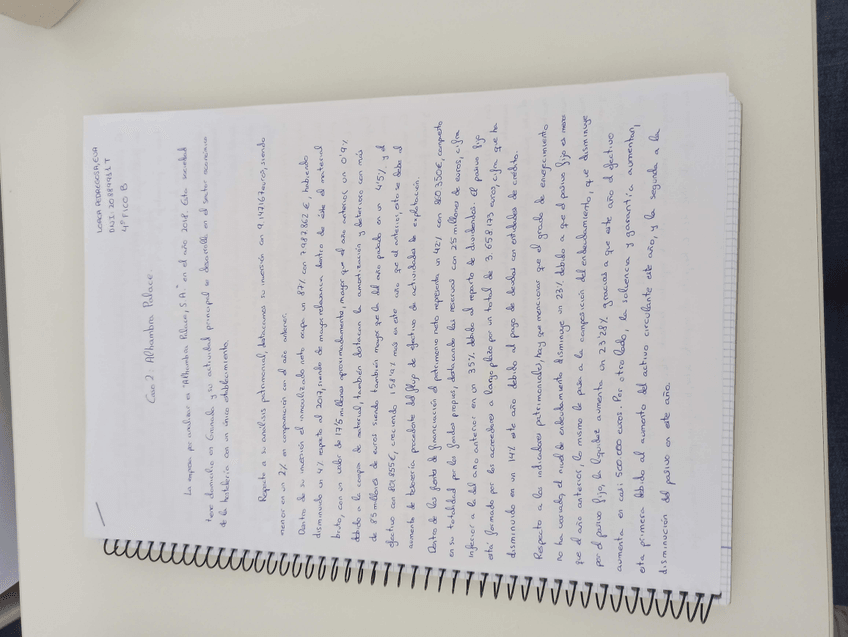 LORCA PEDREGOSA, EVA
4º FICO B
Caso 2: Alhambra Palace
La empresa por analizar es "Alhambra Palace, S.A." en el año 2018. Esta sociedad
tiene domicilio en Granada y su actividad principal se desarrolla en el sector económico
de la hostelería con un único establecimiento.
Respecto a su análisis patrimonial, destacamos su inversión con 9.147.167 euros, siendo
menor en un 2% en comparación con el año anterior.
Dentro de su inversión el inmovilizado neto ocupa un 87% con 7.987.862 €, habiendo
disminuido un 4% respecto al 2017, siendo de mayor relevancia dentro de éste el material
bruto, con un valor de 17'5 millones aproximadamente, mayor que el año anterior un 0'9%
debido a la compra de material, también destacan la amortización y deterioro con más
de 8'5 millones de euros siendo también mayor que la del año pasado en un 4'5% y el
efectivo con 801.855€, creciendo 158'4% más en este año que el anterior, esto se debe al
aumento de tesorería procedente del flujo de efectivo de actividades de explotación.
Dentro de las fuentes de financiación el patrimonio neto representa un 42% con 860.350€, compuesto
en su totalidad por los fondos propios, destacando las reservas con 2'5 millones de euros, cifra
inferior a la del año anterior en un 35% debido al reparto de dividendos. El pasivo fijo
está formado por los acreedores a largo plazo por un total de 3.658.173 euros, cifra que ha
disminuido en un 14% este año debido al pago de deudas con entidades de crédito.
Respecto a los indicadores patrimoniales, hay que mencionar que el grado de envejecimiento
no ha variado, el nivel de endeudamiento disminuye un 23% debido a que el pasivo fijo es menor
que el año anterior, lo mismo le pasa a la composición del endeudamiento, que disminuye
por el pasivo fijo, la liquidez aumenta un 23'28% gracias a que este año el efectivo
aumenta en casi 500.000 euros. Por otro lado, la solvencia y garantía aumentan,
esta primera debido al aumento del activo circulante este año, y la segunda a la
disminución del pasivo en este año.